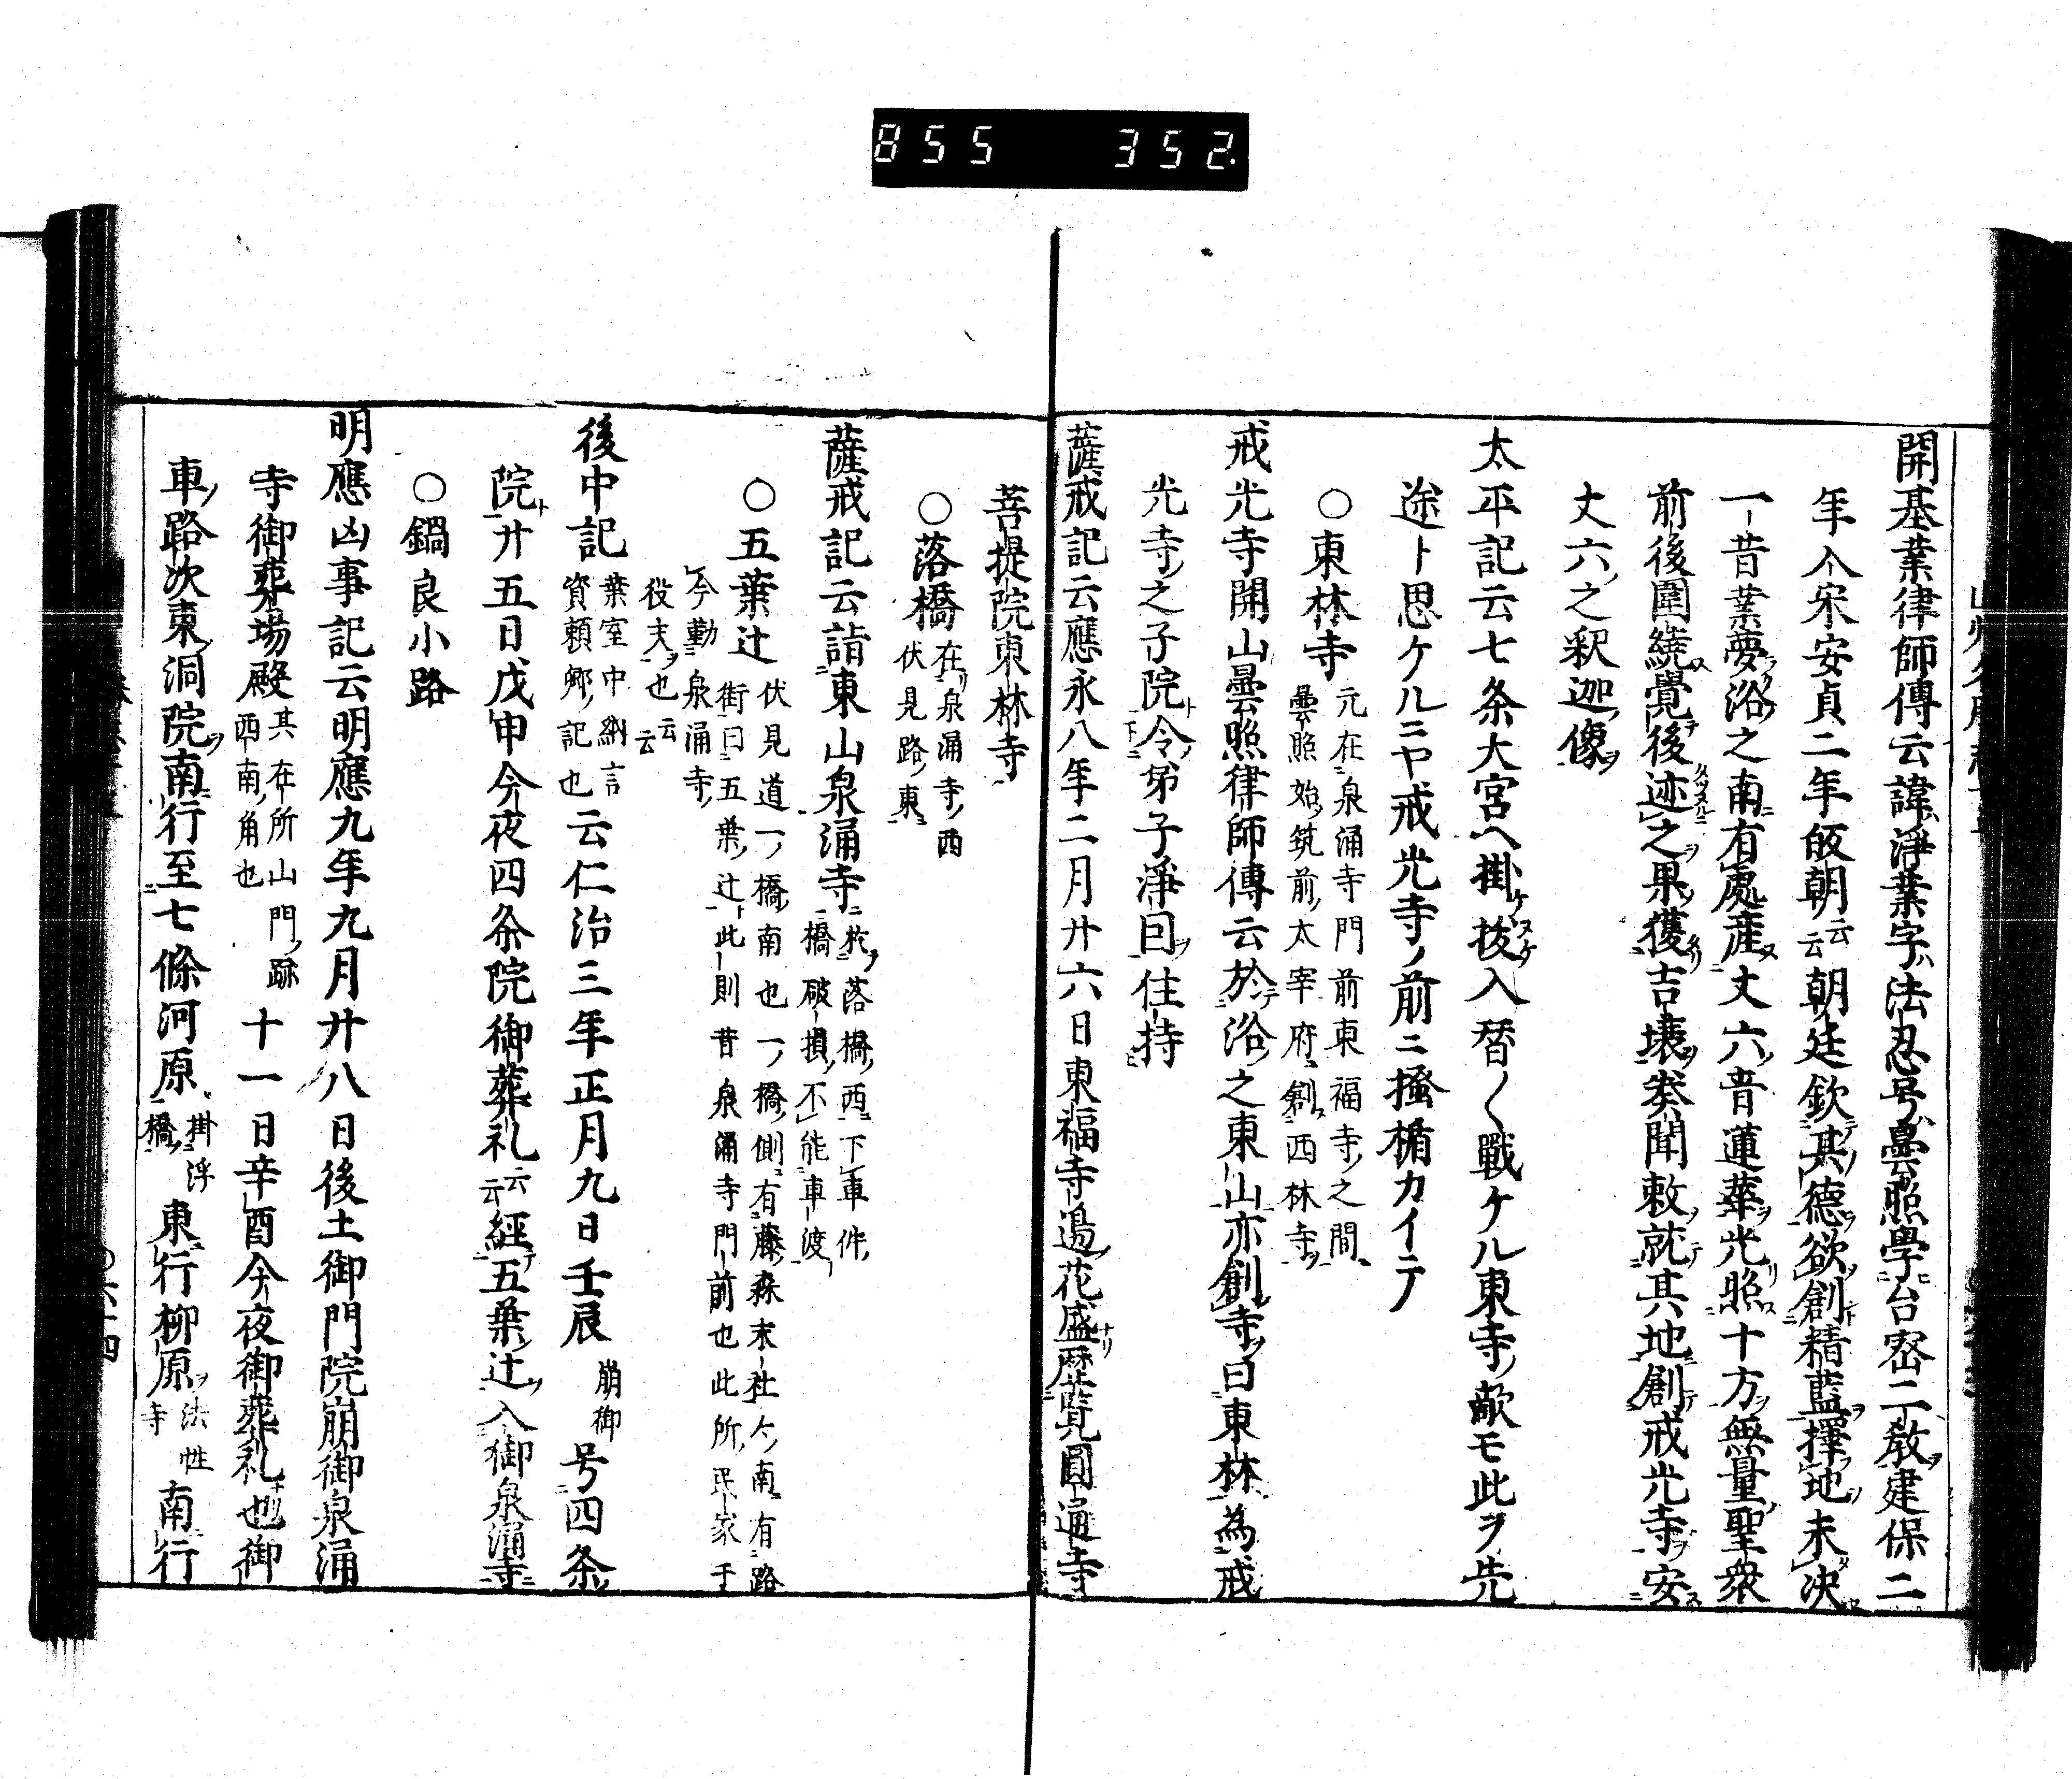 855 352
開基業律師傳云諱淨業字法忍号曇照學台密二教建保二
年入宋安貞二年皈朝云云朝廷欽其德欲創精藍擇地未决
一昔業夢洛之南有處産丈六青蓮華光照十方無量聖衆
前後圍繞覺後迹之果獲吉壌矣聞敕就其地創戒光寺安
丈六之釈迦像
太平記云七条大宮へ掛抜入替〱戰ケル東寺ノ敵モ此ヲ先
途ト思ケルニヤ戒光寺ノ前ニ搔楯カイテ
○東林寺 元在泉涌寺門前東福寺之間
曇照始筑前太宰府創西林寺
戒光寺開山曇照律師傳云於洛之東山亦創寺曰東林為戒
光寺之子院令弟子淨因住持
薩戒記云應永八年二月廿六日東福寺邉花盛歴覧圓通寺
菩提院東林寺
○落橋 在泉涌寺西
伏見路東
薩戒記云詣東山泉涌寺 於落橋西下車件
橋破損不能車渡
○五葉辻 伏見道一橋南也一橋側有藤森末社今南有路
街曰五葉辻此則昔泉涌寺門前也此所民家于
今勤泉涌寺
役夫也云云
後中記 葉室中納言
資頼卿記也 云仁治三年正月九日壬辰 崩御 号四条
院廿五日戊申今夜四条院御葬礼云云経五葉辻入御泉涌寺
○鍋良小路
明應凶事記云明應九年九月廿八日後土御門院崩御泉涌
寺御葬場殿 其在所山門跡
西南角也 十一日辛酉今夜御葬礼也御
車路次東洞院南行至七條河原 掛浮
橋 東行柳原 法性
寺 南行